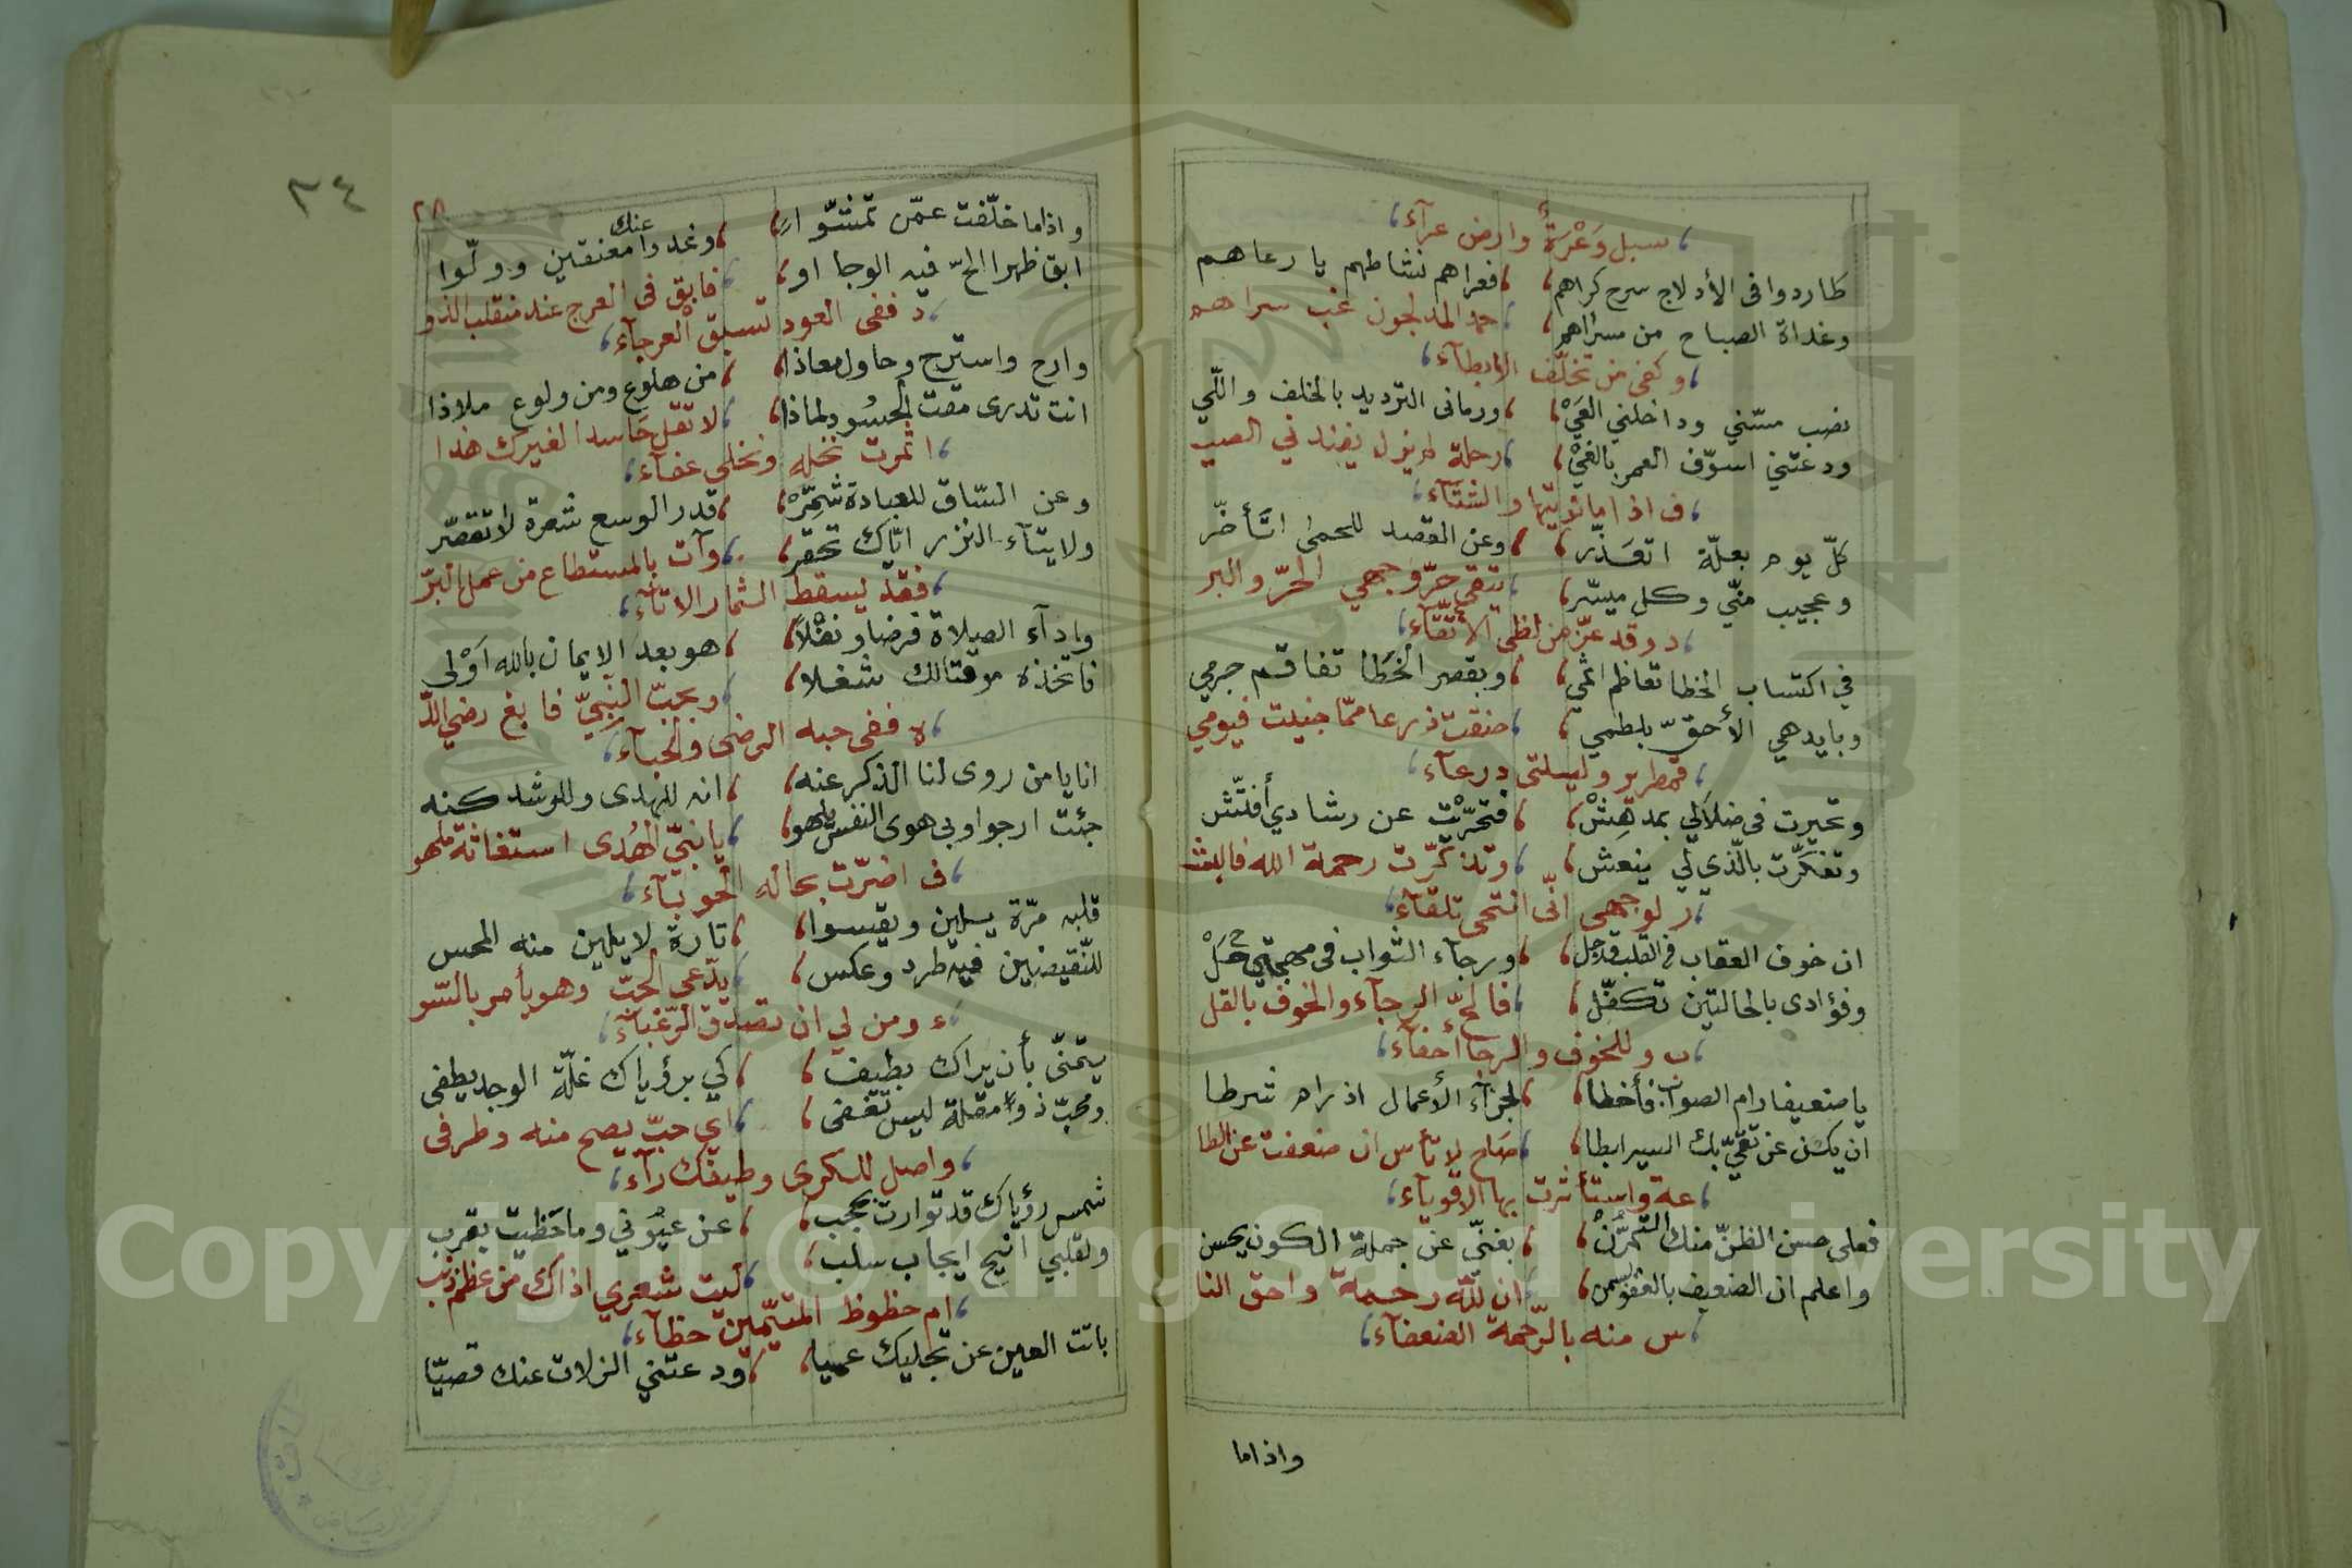 سبل وَعْرَةٌ وارض عرآء
طاردوا فى الأدلاج سرح كراهم ، فعراهم نشاطهم يا رعاهم
وغداة الصباح من مسراهم ، حمد المدلجون غب سراهم
وكفى من تخلّف الابطآء
نصب مسّني وداخلني العَيْ ، ورمانى الترديد بالخلف واللّي
ودعتني اسوّف العمر بالغيْ ، رحلة لم يزل يفند ني الصيـ
ـف اذا ما نويتها والشتآء
كلّ يوم بعلّة اتعَذّر ، وعن القصد للحمى اتأخّر
وعجيب منّي وكل ميسّر ، يتقى حرّ وجهي الحرّ والبر
د وقد عزّ من لظى الأتّقآء
في اكتساب الخطا تعاظم اثمي ، وبقصر الخَطَا تفاقم جرمي
وبايدهي الأحقّ بلطمي ، ضقت ذرعا ممّا جنيت فيومي
قمطرير وليلتى درعآء
وتحيرت فى ضلاَلي بمدهِشْ ، فتحرّيْت عن رشادي أفتّش
وتفكّرت بالّذي لي ينعش ، وتذكّرت رحمة الله فالبشـ
ـر لوجهى انّى انتحى تلقآء
ان خوف العقاب فى القلب قد جل ، ورجاء الثواب فى مهجتي حَلْ
وفؤادى بالحالتين تكفّل ، فالحّ الرجآء والخوف بالقلـ
ـب وللخوف والرجا أحفآء
يا ضعيفا رام الصواب فأخطا ، لجزآء الأعمال اذ رام شرطا
ان يكن عن تقيّ بك السير ابطا ، صاح لا تأس ان ضعفت عن الطا
عة واستأثرت بها الاقويآء
فعلى حسن الظنّ منك التمرّنْ ، بغنيّ عن جملة الكون يحسن
واعلم ان الضعيف بالعفو يسمن ، ان للّه رحمة واحق النا
س منه بالرّحمة الضعفآء
واذاما
٣٤
٢٨
واذاما خلّفت عمّن تمشّوا ، وغدوا عنك معنقين وولّوا
ابق ظهرا الحّ فيه الوجا او ، فابق فى العرج عند منقلب الذو
د ففى العود تسبق العرجآء
وارح واسترح وحاول معاذا ، من هلوع ومن ولوع ملاذا
انت تدرى مقت الحسُود لماذا ، لا تقل حَاسدا لغيرك هذا
اثمرت نخله ونخلى عفآء
وعن السّاق للعبادة شَمِّرْ ، قدر الوسع شعرة لا تقصّر
ولايتآء النزر ايّاك تحقر ، وآت بالمستطاع من عمل البرّ
فقد يسقط الثمار الاتآء
وادآء الصلاة فرضا ونفْلاً ، هو بعد الايمان بالله اَوْلى
فاتخذه موقتالك شغلا ، وبحبّ النّبيّ فابغ رضي اللّـ
ـه ففى حبه الرضى والحبآء
انا يا من روى لنا الذكر عنه ، انه للهدى وللرشد كنه
جئت ارجوا وبى هوى النفس يلهو ، يا نبيّ الهُدى استغاثة ملهو
ف اضرّت بحاله الحوبآء
قلبه مرّة يلين ويقسوا ، تارة لا يلين منه المحس
للنّقيضين فيه طرد وعكس ، يدّعى الحبّ وهو يأمر بالسّو
ء ومن لي ان تصدق الرّغبآء
يتمنّى بأن يراك بطيف ، كي برؤياك غلّة الوجد يطفى
ومحبّ ذو مقلة ليس تغفى ، اي حبّ يصح منه وطرفى
واصل للكرى وطيفك رآء
شمس رؤياك قد توارت بحجب ، عن عيُوني وما حَظيت بقرب
ولقلبي اتيح ايجاب سلب ، ليت شعري اذاك من عظم ذنب
ام حظوظ المتيّمين حظآء
باتت العين عن تجليك عميا ، ودعتني الزلات عنك قصيّا
Copyright © King Saud University